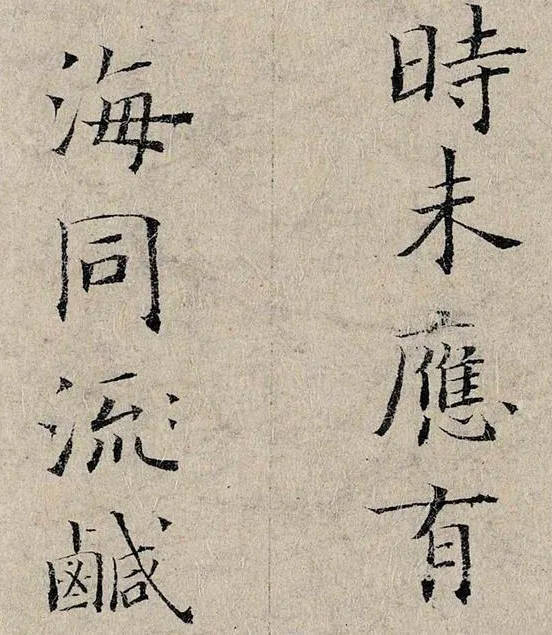 時未應有
海同流鹹